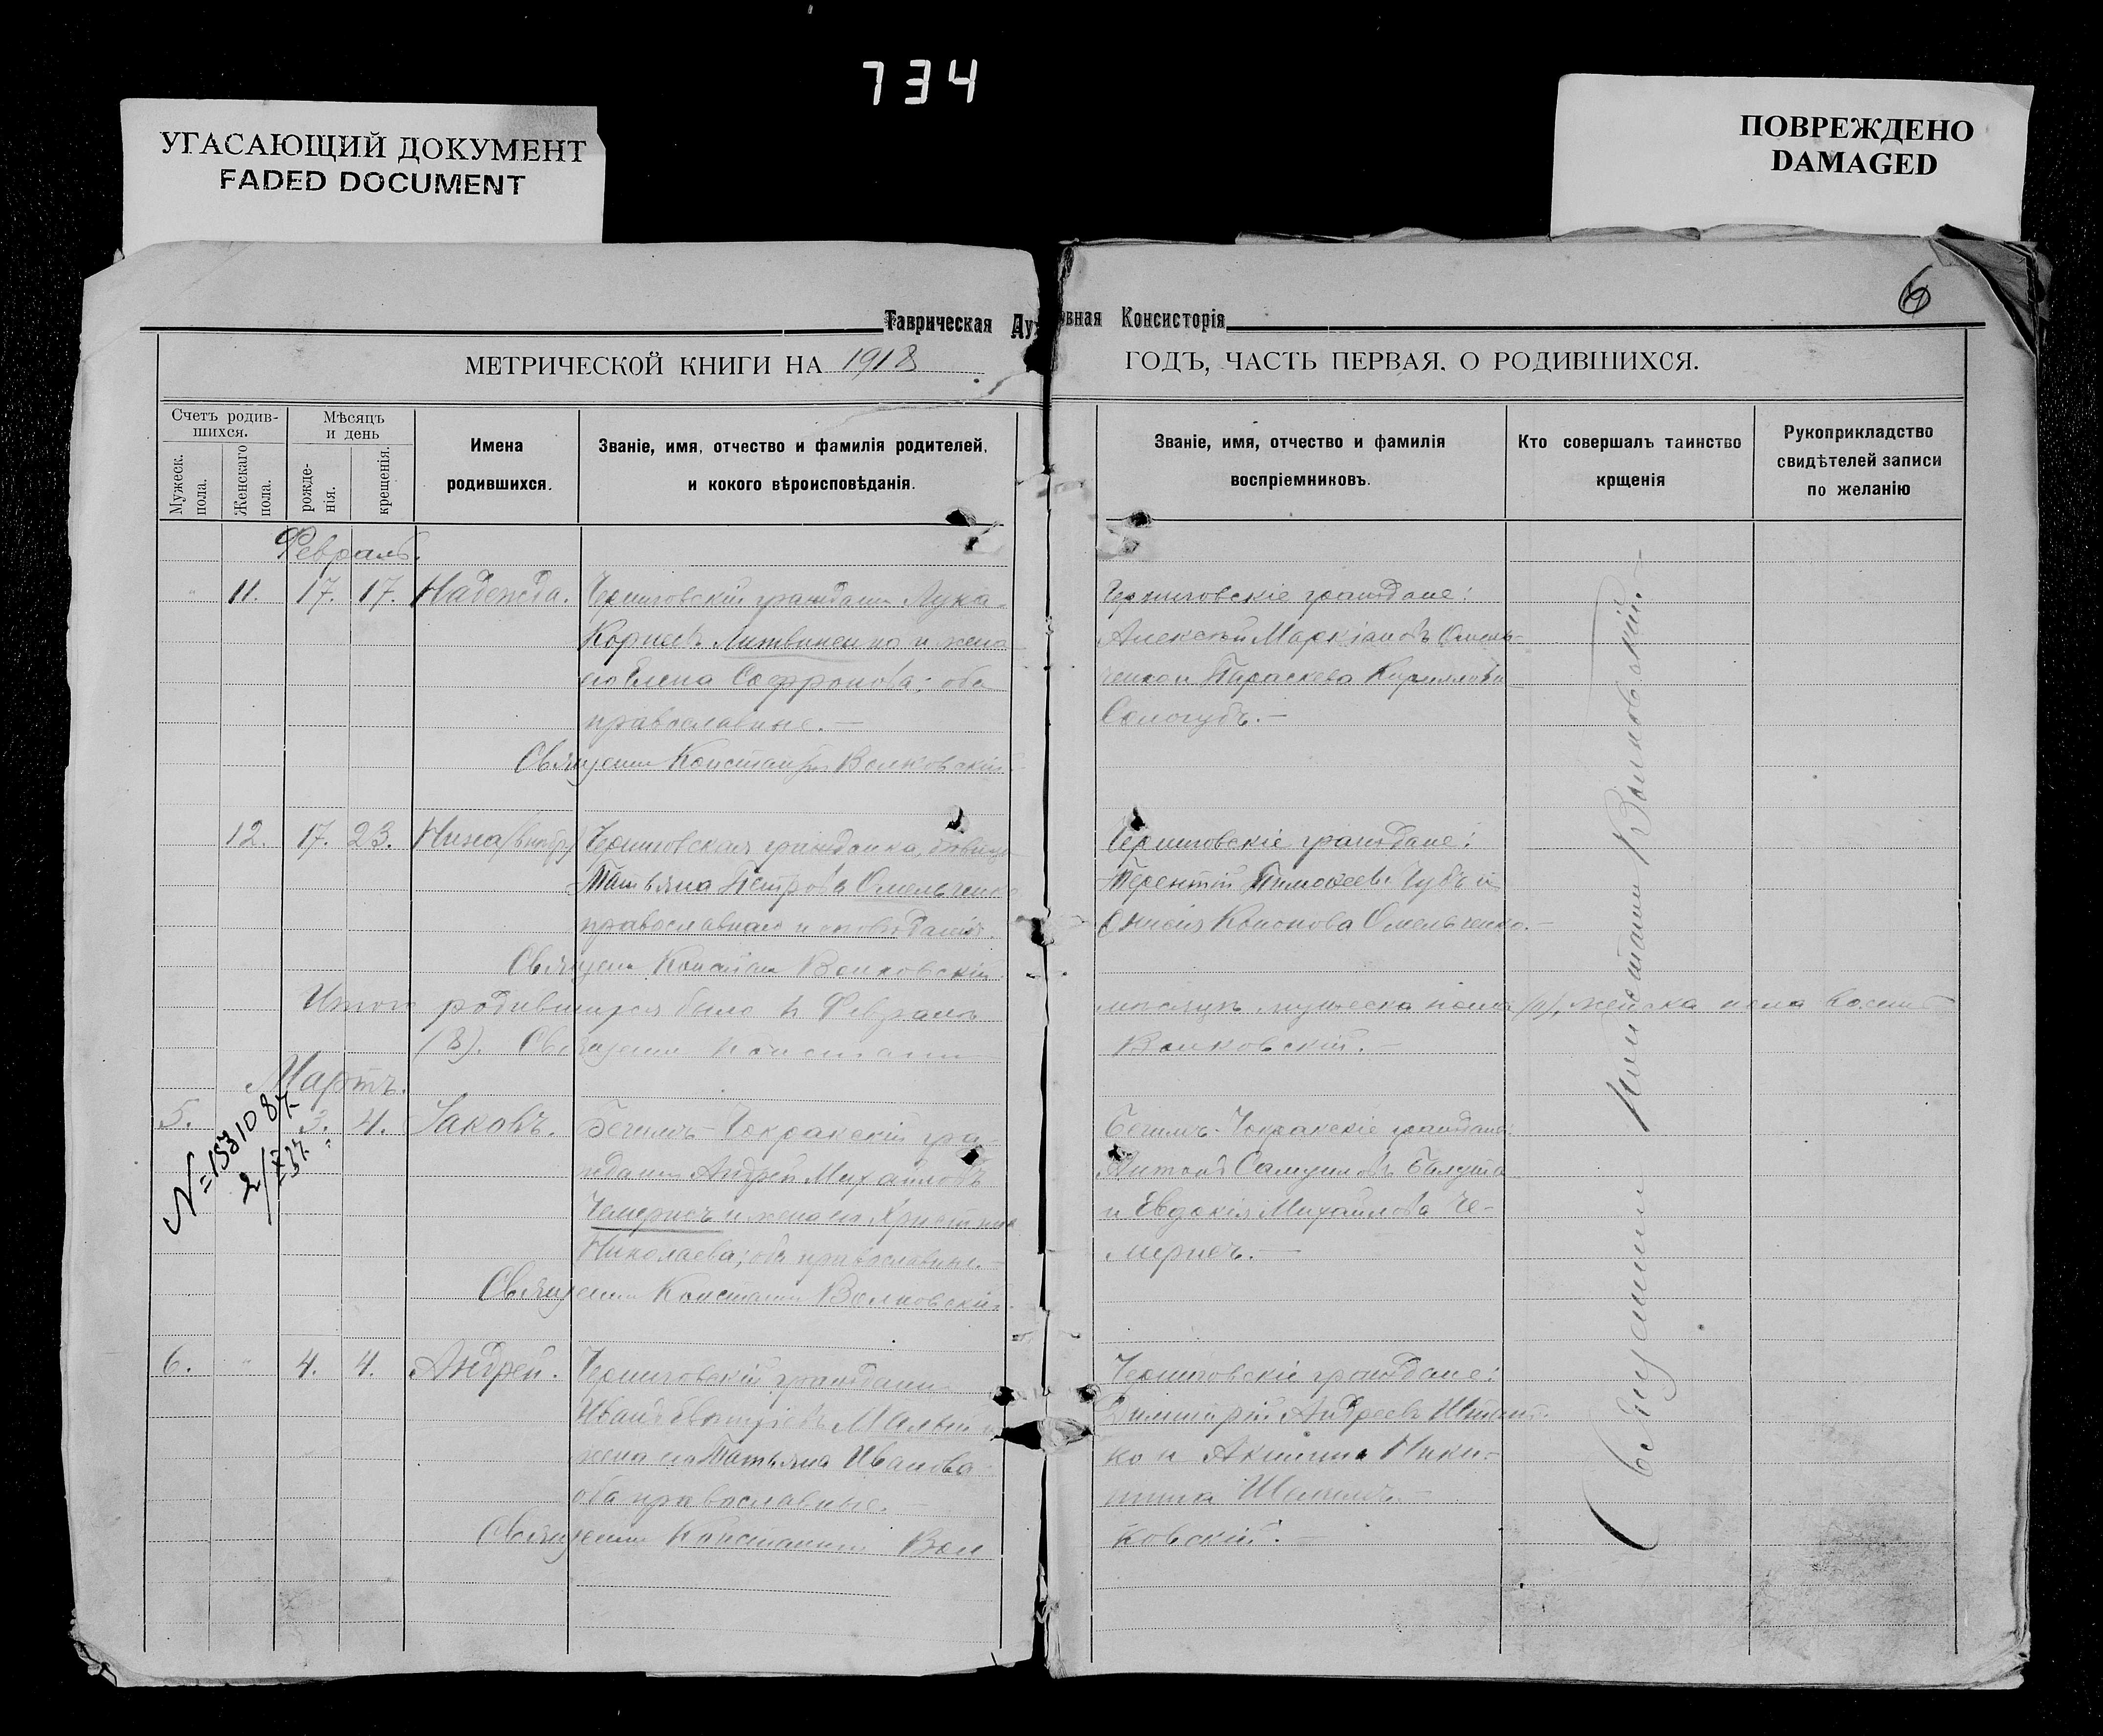 734
УГАСАЮЩИЙ ДОКУМЕНТ
FADED DOCUMENT
ПОВРЕЖДЕНО
DAMAGED
6
Таврическая Ду
овная Консисторія
МЕТРИЧЕСКОЙ КНИГИ НА 1918
ГОДЪ, ЧАСТЬ ПЕРВАЯ, О РОДИВШИХСЯ.
Счетъ родив-
шихся.
Мѣсяцъ
и день
Мужеск.
пола.
Женскаго
пола.
рожде-
нія.
крещенія.
Имена
родившихся.
Званіе, имя, отчество и фамилія родителей,
и кокого вѣроисповѣданія.
Званіе, имя, отчество и фамилія
воспріемниковъ.
Кто совершалъ таинство
крщенія
Рукоприкладство
свидѣтелей записи
по желанію
Февраль.
" 11. 17. 17. Надежда. Черниговскій гражданин Лука
Корнеев Литвиненко и жена
его Елена Софронова; оба
православные. —
Священ Констан Волковскій
Черниговскіе граждане:
Алексѣй Маркіановъ Омель-
ченко и Параскева Кириллова
Сологубъ. —
12. 17. 23. Нина Черниговская гражданка, девица
Татьяна Петрова Омельченко
православнаго исповѣданія.
Священ Констан Волковскій
Черниговскіе граждане:
Терентій Тимофеевъ Чубъ и
Ксенія Кононова Омельченко. —
Итого родившихся было въ Февралѣ
мѣсяцѣ мужеска пола женска пола восемь
(8). Священ Констант
Волковскій. —
Мартъ.
5. 3. 4. Іаковъ. Бегимъ-Чокракскій гра-
жданин Андрей Михайловъ
Чемерисъ и жена его Христина
Николаева; оба православные. —
Священ Констант Волковскій.
Бегимъ-Чокракскіе граждане:
Антоній Самуиловъ
и Евдокія Михайлова Че-
мерисъ. —
N=1531087
2/737
6. " 4. 4. Андрей. Черниговскій гражданин
Иванъ Малый и
жена его Татьяна Иванова
оба православные.
Священ Констант Вол
Черниговскіе граждане:
Димитрій Андреевъ
ко и Акилина Ники-
тина
ковскій. —
Священ Констант Волковскій. —